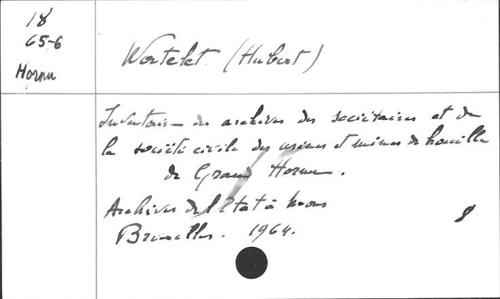 18
65-6
Hornu
Wortelet (Hubert)
Inventaire des archives des sociétaires et de
la société civile des usines et mines de houille
de Grand Hornu.
Archives de l'Etat à Mons
Bruxelles. 1964.
8